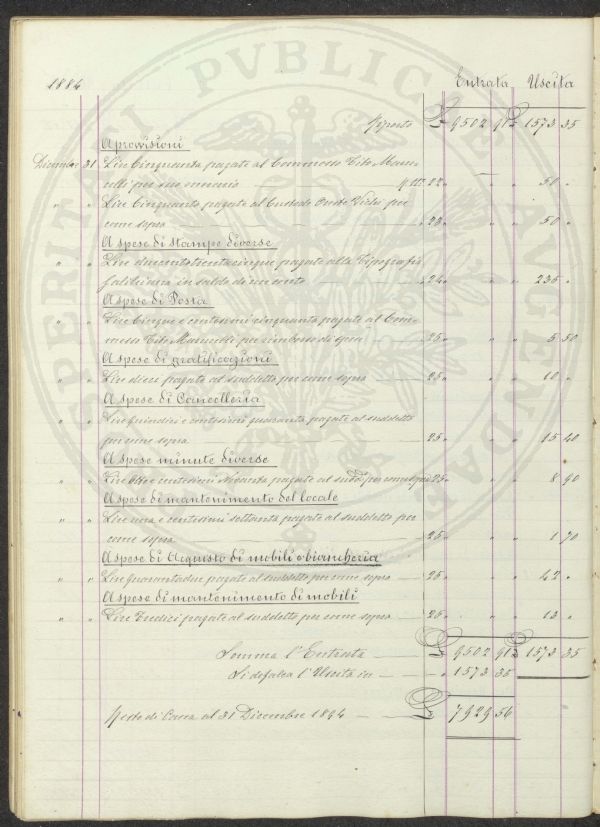 1884 Entrata Uscita
Riporto £ 9502 91 £ 1573 35
A provisioni
Dicembre 31 Lire Cinquanta pagate al Commesso Tito
per suo mensile 22 " " " 50 "
" " Lire Cinquanta pagate al Custode per
come sopra 23 " " " 50 "
A spese di stampe diverse
" " Lire duecentotrentacinque pagate alla Tipografia
in saldo di un conto 24 " " " 235 "
A spese di Posta
" " Lire Cinque e centesimi cinquanta pagate al Com-
messo Tito per rimborso di spesa 25 " " " 5 50
A spese di gratificazioni
" " Lire dieci pagate al suddetto per come sopra 25 " " " 10 "
A spese di Cancelleria
" " Lire quindici e centesimi quaranta pagate al suddetto
per come sopra 25 " " " 15 40
A spese minute diverse
" " Lire Otto e centesimi Novanta pagate al sudd. per come sopra 25 " " " 8 90
A spese di mantenimento del locale
" " Lire una e centesimi settanta pagate al suddetto per
come sopra 25 " " " 1 70
A spese di Acquisto di mobili e biancheria
" " Lire quarantadue pagate al suddetto per come sopra 25 " " " 42 "
A spese di mantenimento di mobili
" " Lire Tredici pagate al suddetto per come sopra 25 " " " 13 "
Somma l'Entrata £ 9502 91 £ 1573 35
Si defalca l'Uscita in " 1573 35
Resto di Cassa al 31 Dicembre 1884 £ 7929 56